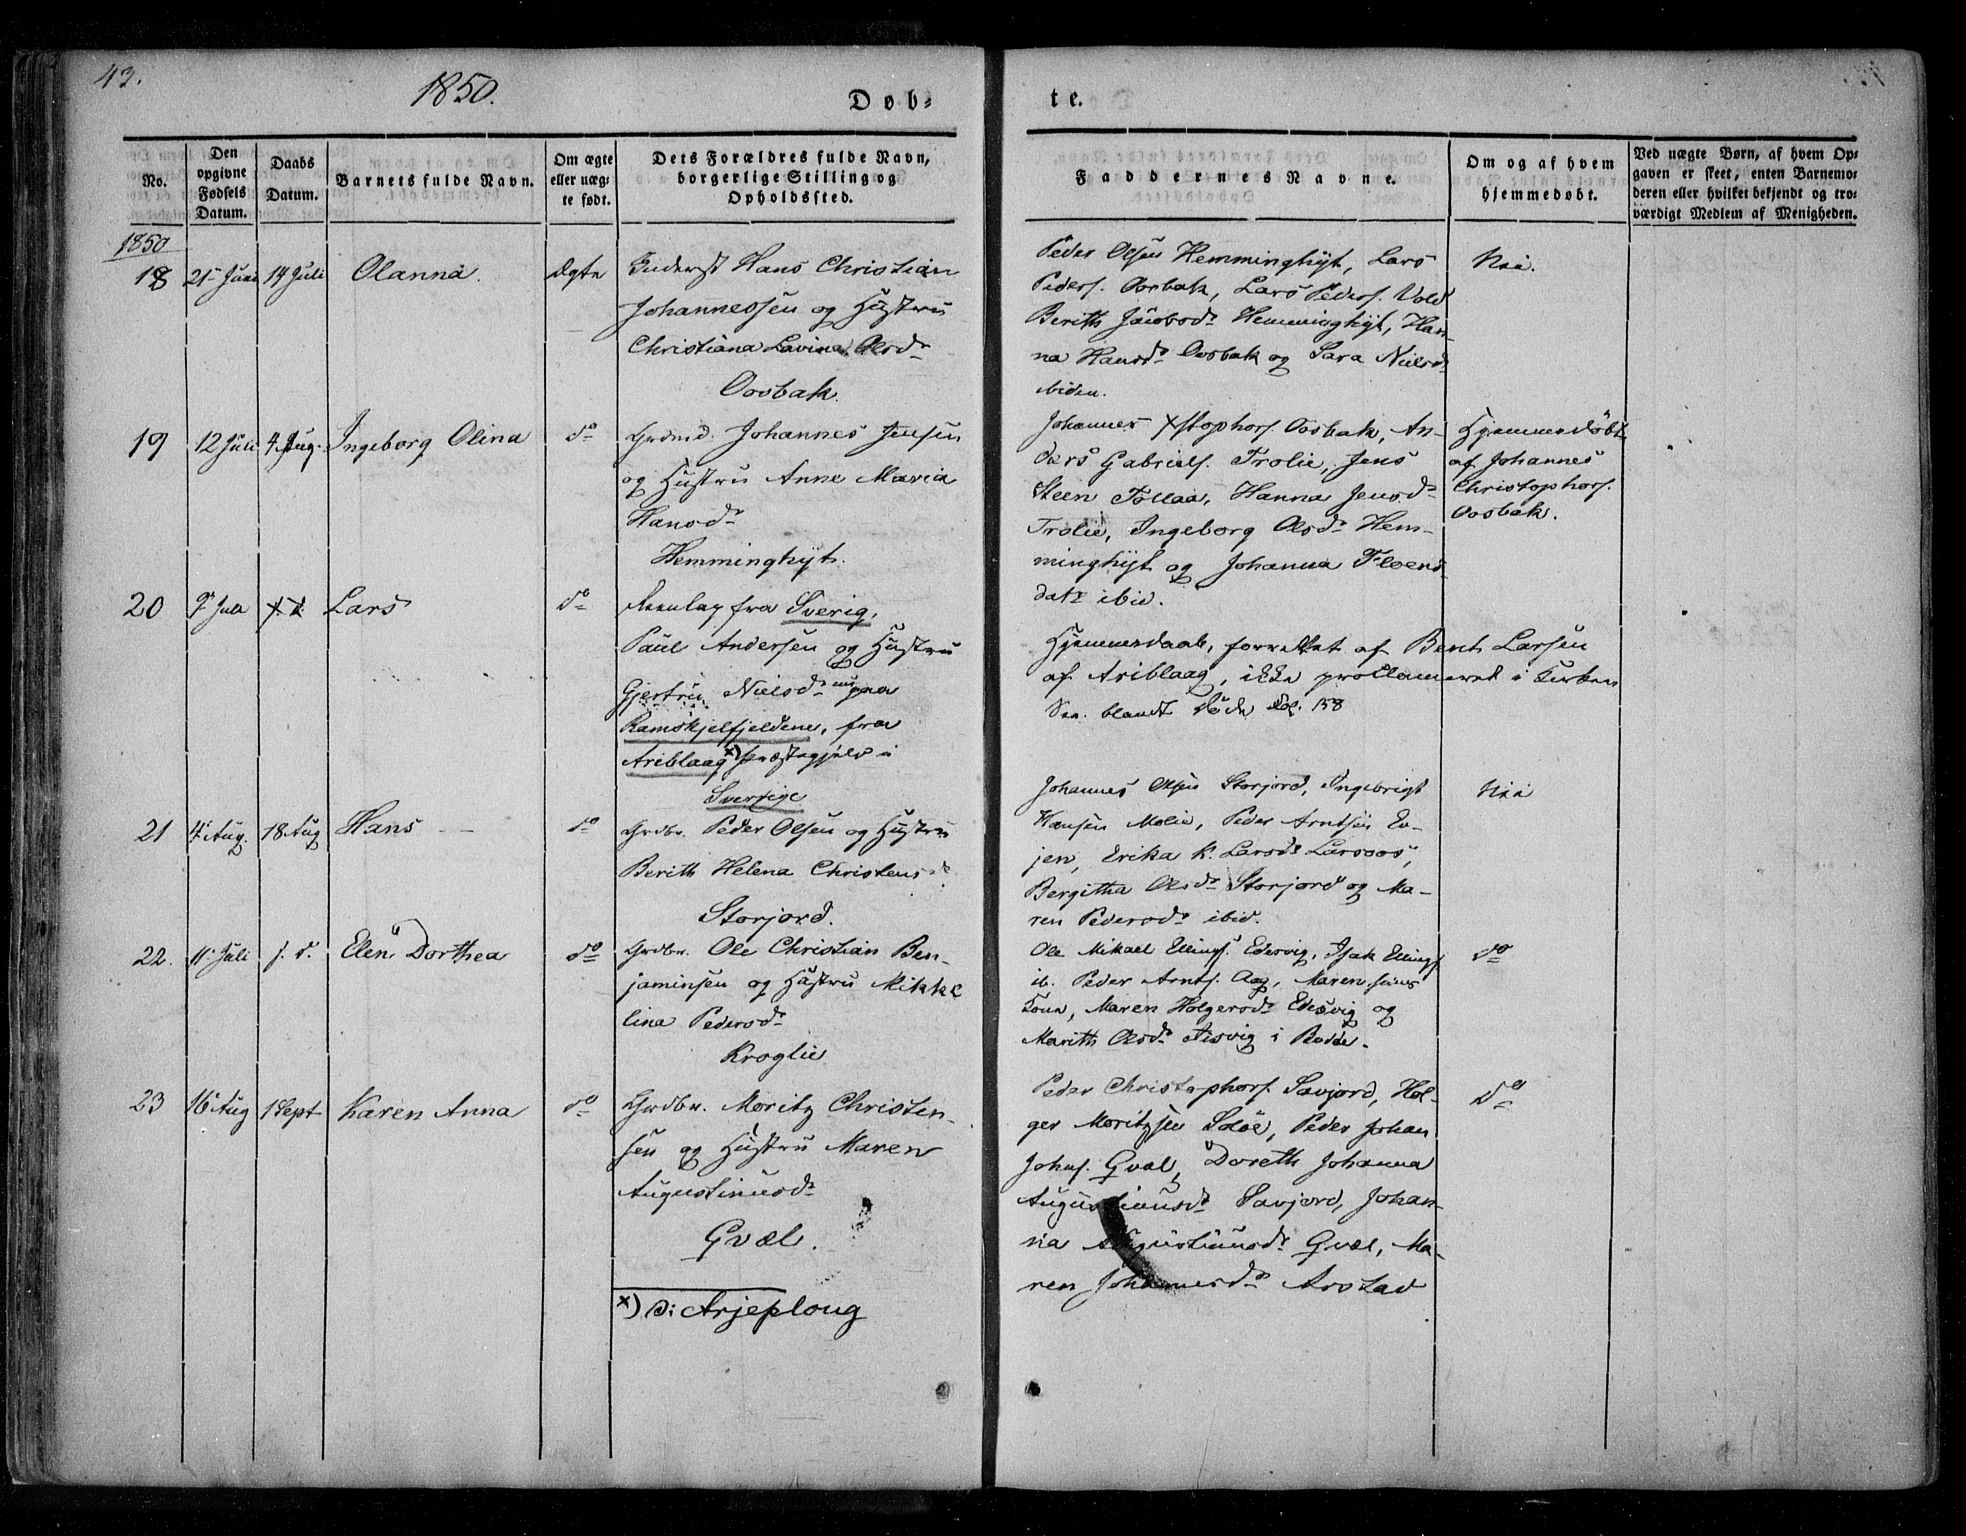 43.
1850.
Døb-
te.
No.
Den opgivne Fødsels Datum.
Daabs Datum.
Barnets fulde Navn.
Om ægte eller uægte født.
Dets Forældres fulde Navn, borgerlige Stilling og Opholdssted.
Faddernes Navne.
Om og af hvem hjemmedøbt.
Ved uægte Børn, af hvem Opgaven er skeet, enten Barnemoderen eller hvilket bekjendt og troværdigt Medlem af Menigheden.
1850
18 21 Juni 14 Juli Olanna. Ægte
Inderst Hans Christian
Johannessen og Hustru
Christiana Lavina Olsdr
Oosbak.
Peder Olsen Hemminghÿt, Lars
Peders. Oosbak, Lars Peders. Vold
Berith Jacobsdr Hemminghÿt, Han-
na Hansdr Oosbak og Sara Nielsdr
ibiden.
Nei.
19 12 Juli 4 Aug. Ingeborg Olina do
Grdmd. Johannes Jensen
og Hustru Anne Maria
Hansdr
Hemminghÿt.
Johannes Xstophors. Oosbak, An-
ders Gabriels. Trolie, Jens
Steen Tollaa, Hanna Jensdr
Trolie, Ingeborg Olsdr Hem-
minghÿt og Johanna
datr ibid.
Hjemmedöbt
af Johannes
Christophors.
Oosbak.
20 Lars do
fra Sverig,
Paul Andersen og Hustru
Gjertru Nielsdr nu paa
Ramskjelfjeldene, fra
Ariblaag x) Præstegjeld i
Sverige
Hjemmedaab, forrettet af Bent Larsen
af Ariblaag, ikke proklameret i Kirken
See blandt døde Fol. 158
21 4 Aug. 18 Aug Hans do
Grdbr. Peder Olsen og Hustru
Berith Helena Christensdr
Storjord.
Johannes Olsen Storjord, Ingebrigt
Hansen Molie, Peder Arntsen Ev-
jen, Erika K. Larsdr Larsoos,
Bergitha Olsdr Storjord og Ma-
ren Pedersdr ibid.
Nei
22. 11 Juli s. d. Elen Dorthea do
Grdbr. Ole Christian Ben-
jaminsen og Hustru Mikke
lina Pedersdr
Kroglie
Ole Mikael Ellings. Edesvig, Isak Ellings.
ib. Peder Arnts. Aag, Maren
Kone, Maren Holgersdr Edesvig og
Marith Olsdr i Bodø.
do
23 16 Aug 1 Sept Karen Anna do
Grdbr. Moritz Christen-
sen og Hustru Maren
Augustinusdr
Gvæl.
Peder Christophors. Savjord, Hol-
ger Moritzsen Soløe, Peder Johan
Johns. Gvæl, Doreth Johanna
Augustinusdr Savjord, Johan-
na Augustinusdr Gvæl, Ma-
ren Johannesdr Arstad
do
x) ɔ: Arjeploug